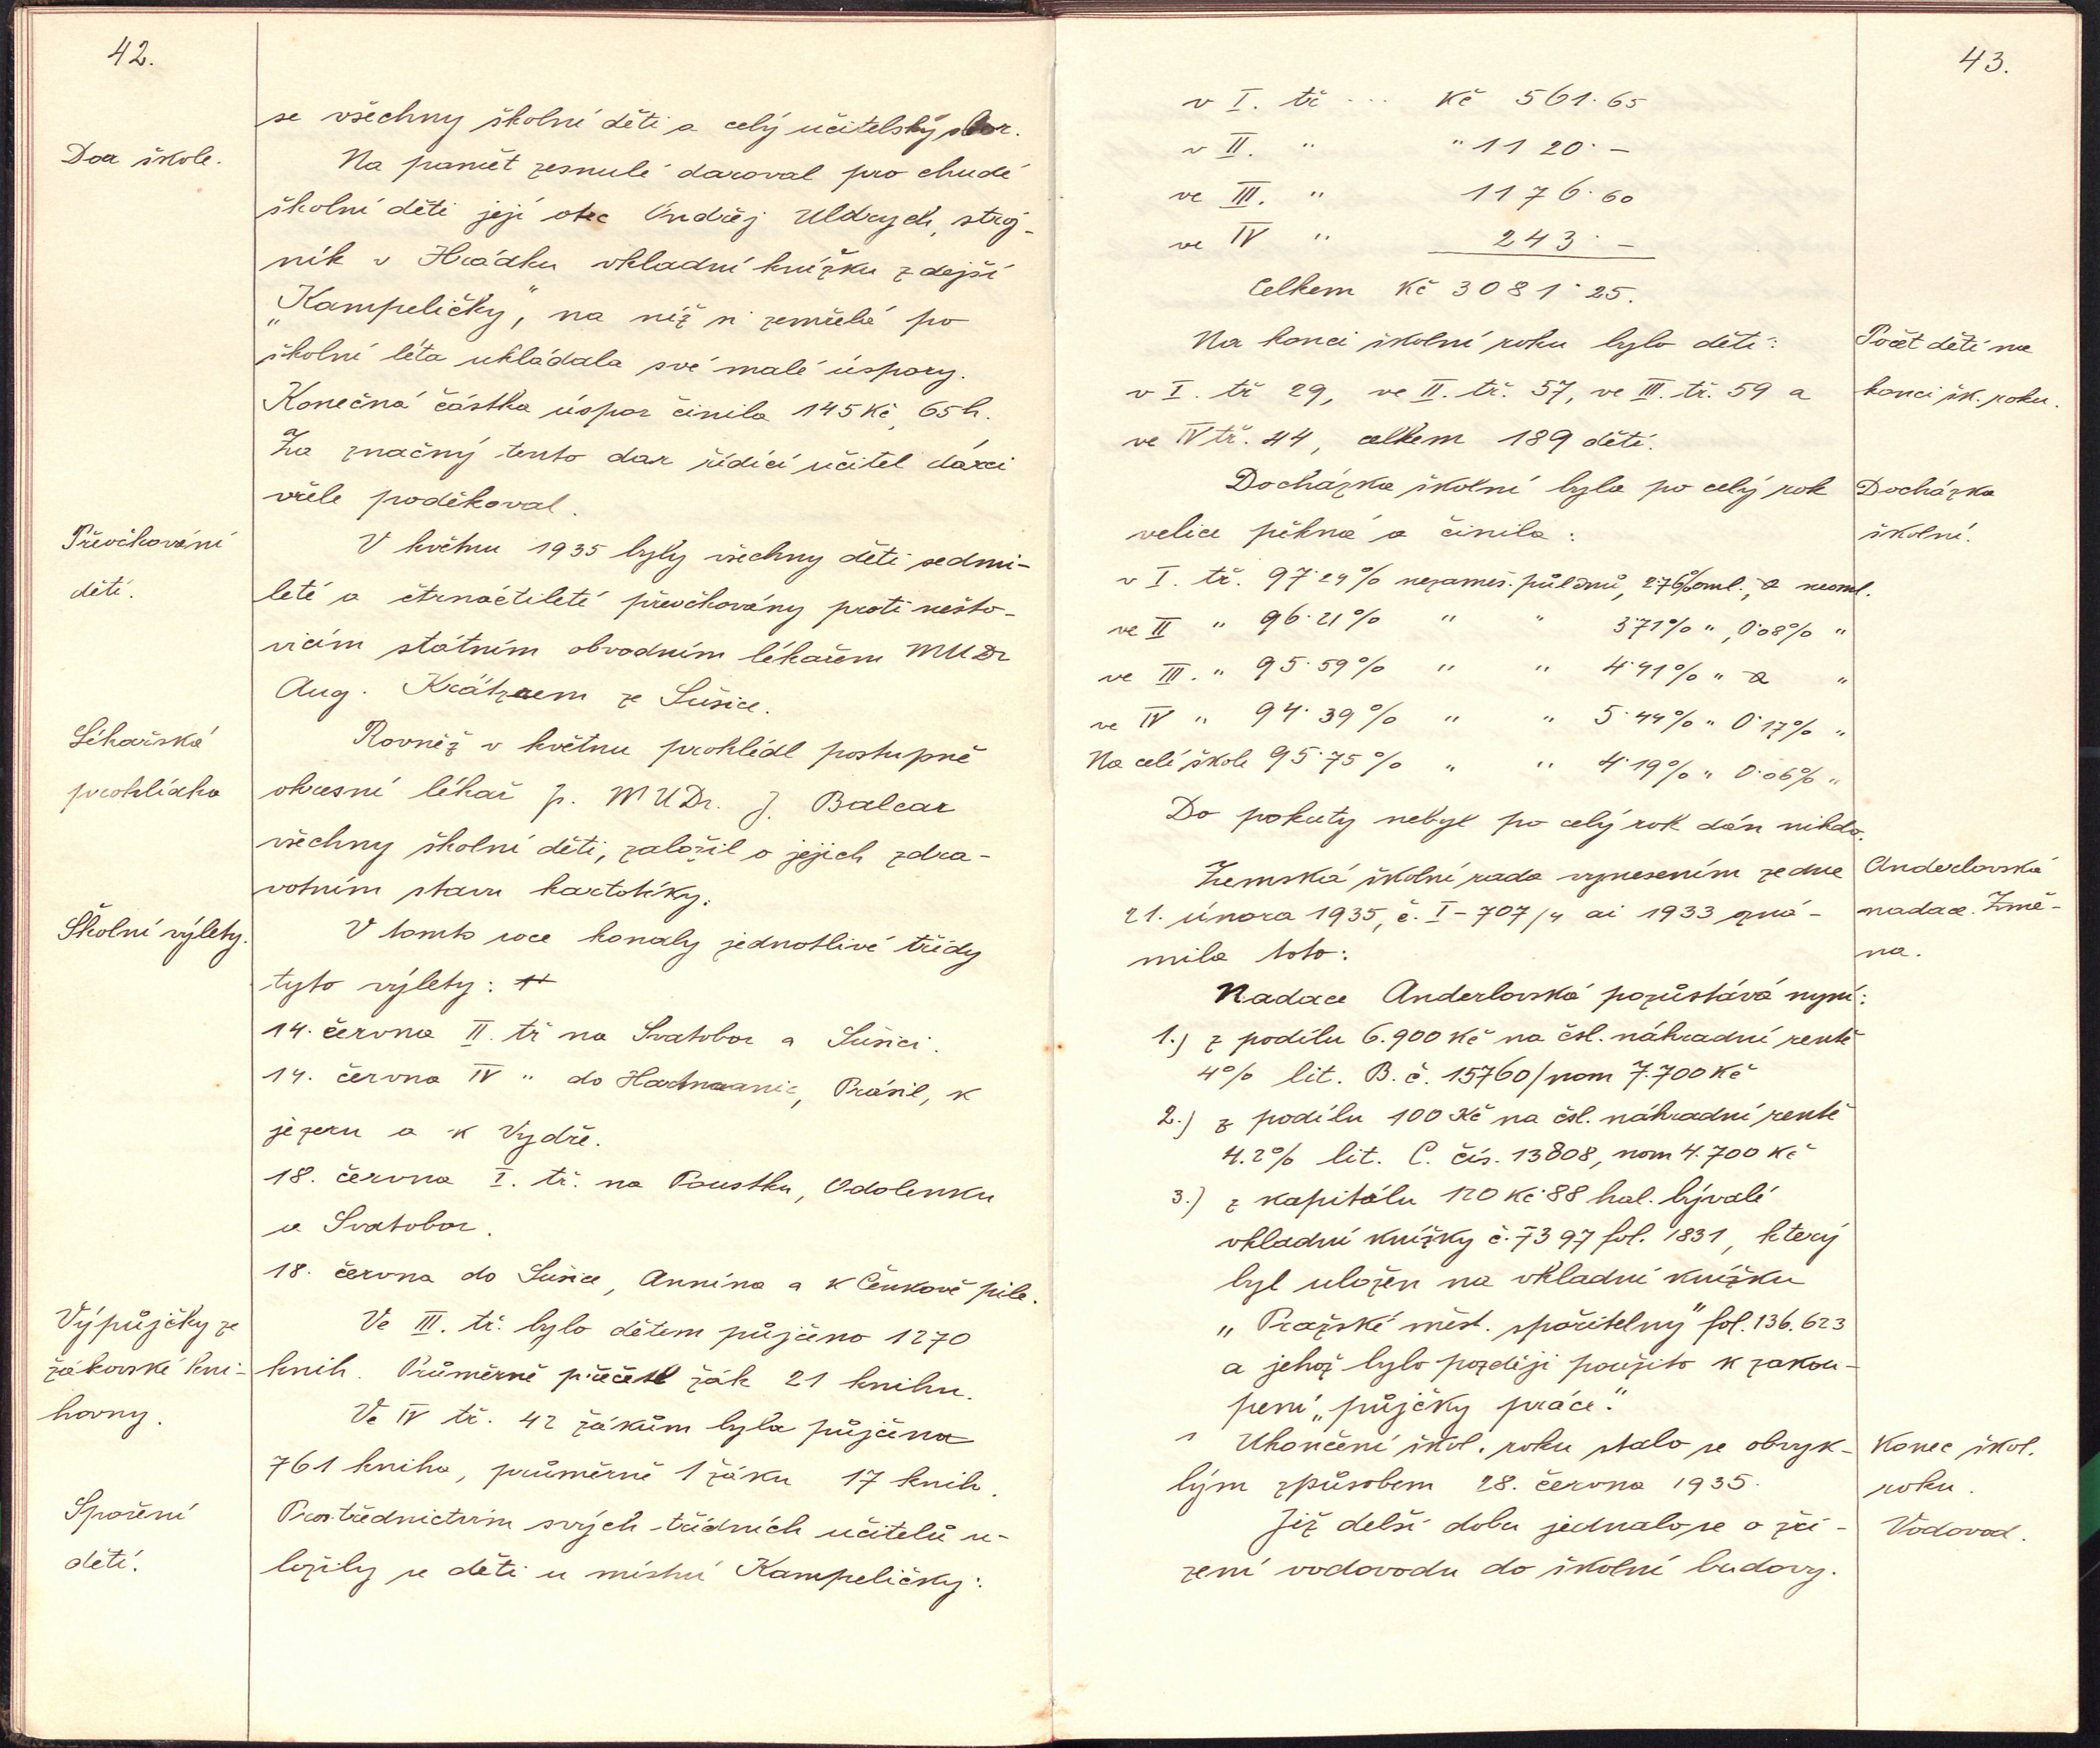 42.
se všechny školní děti a celý učitelský sbor.
Dar škole.
Na paměť zesnulé daroval pro chudé
školní děti její otec Ondřej Uldrych, stroj-
ník v Hrádku vkladní knížku zdejší
„Kampeličky", na níž si zemřelá po
školní léta ukládala své malé úspory.
Konečná částka úspor činila 145 Kč, 65 h.
Za značný tento dar řídící učitel dárci
vřele poděkoval.
Přeočkování
dětí.
V květnu 1935 byly všechny děti sedmi-
leté a čtrnáctileté přeočkovány proti nešto-
vicím státním obvodním lékařem MUDr
Aug. Krátzrem ze Sušice.
Lékařská
prohlídka
Rovněž v květnu prohlédl postupně
okresní lékař p. MUDr. J. Balcar
všechny školní děti, založil o jejich zdra-
votním stavu kartotéky.
Školní výlety.
V tomto roce konaly jednotlivé třídy
tyto výlety:
14. června II. tř na Svatobor a Sušici.
14. června IV " do Hartmanic, Prášil, k
jezeru a k Vydře.
18. června I. tř. na Poustku, Odolenku
a Svatobor.
18. června do Sušice, Annína a k Čenkově pile.
Výpůjčky ze
žákovské kni-
hovny.
Ve III. tř. bylo dětem půjčeno 1270
knih. Průměrně přečetl žák 21 knihu.
Ve IV tř. 42 žákům byla půjčena
761 kniha, průměrně 1 žáku 17 knih.
Spoření
dětí.
Prostřednictvím svých třídních učitelů u-
ložily si děti u místní Kampeličky:
43.
v I. tř ... Kč 561.65
v II. " " 1120.-
ve III. " 1176.60
ve IV " 243.-
Celkem Kč 3081.25.
Počet dětí na
konci šk. roku.
Na konci školní roku bylo dětí:
v I. tř 29, ve II. tř. 57, ve III. tř. 59 a
ve IV tř. 44, celkem 189 dětí.
Docházka
školní.
Docházka školní byla po celý rok
velice pěkná a činila:
v I. tř. 97.24% nezameš. půldnů, 2.76% oml., a neoml.
ve II " 96.21% " " 3.71% ", 0.08% "
ve III. " 95.59% " " 4.41% " a "
ve IV " 94.39% " " 5.44% " 0.17% "
Na celé škole 95.75% " " 4.19% " 0.06% "
Do pokuty nebyl po celý rok dán nikdo.
Anderlovská
nadace. Změ-
na.
Zemská školní rada vynesením ze dne
21. února 1935, č. I-707/4 ai 1933 ozná-
mila toto:
Nadace Anderlovská pozůstává nyní:
1.) z podílu 6.900 Kč na čsl. náhradní rentě
4% lit. B. č. 15760/nom 7.700 Kč
2.) z podílu 100 Kč na čsl. náhradní rentě
4.2% lit. C. čís. 13808, nom 4.700 Kč
3.) z kapitálu 120 Kč 88 hal. bývalé
vkladní knížky č. 7397 fol. 1831, který
byl uložen na vkladní knížku
„Pražské měst. spořitelny" fol. 136.623
a jehož bylo později použito k zakou-
pení „půjčky práce."
Konec škol.
roku.
Ukončení škol. roku stalo se obvyk-
lým způsobem 28. června 1935.
Vodovod.
Již delší dobu jednalo se o zří-
zení vodovodu do školní budovy.